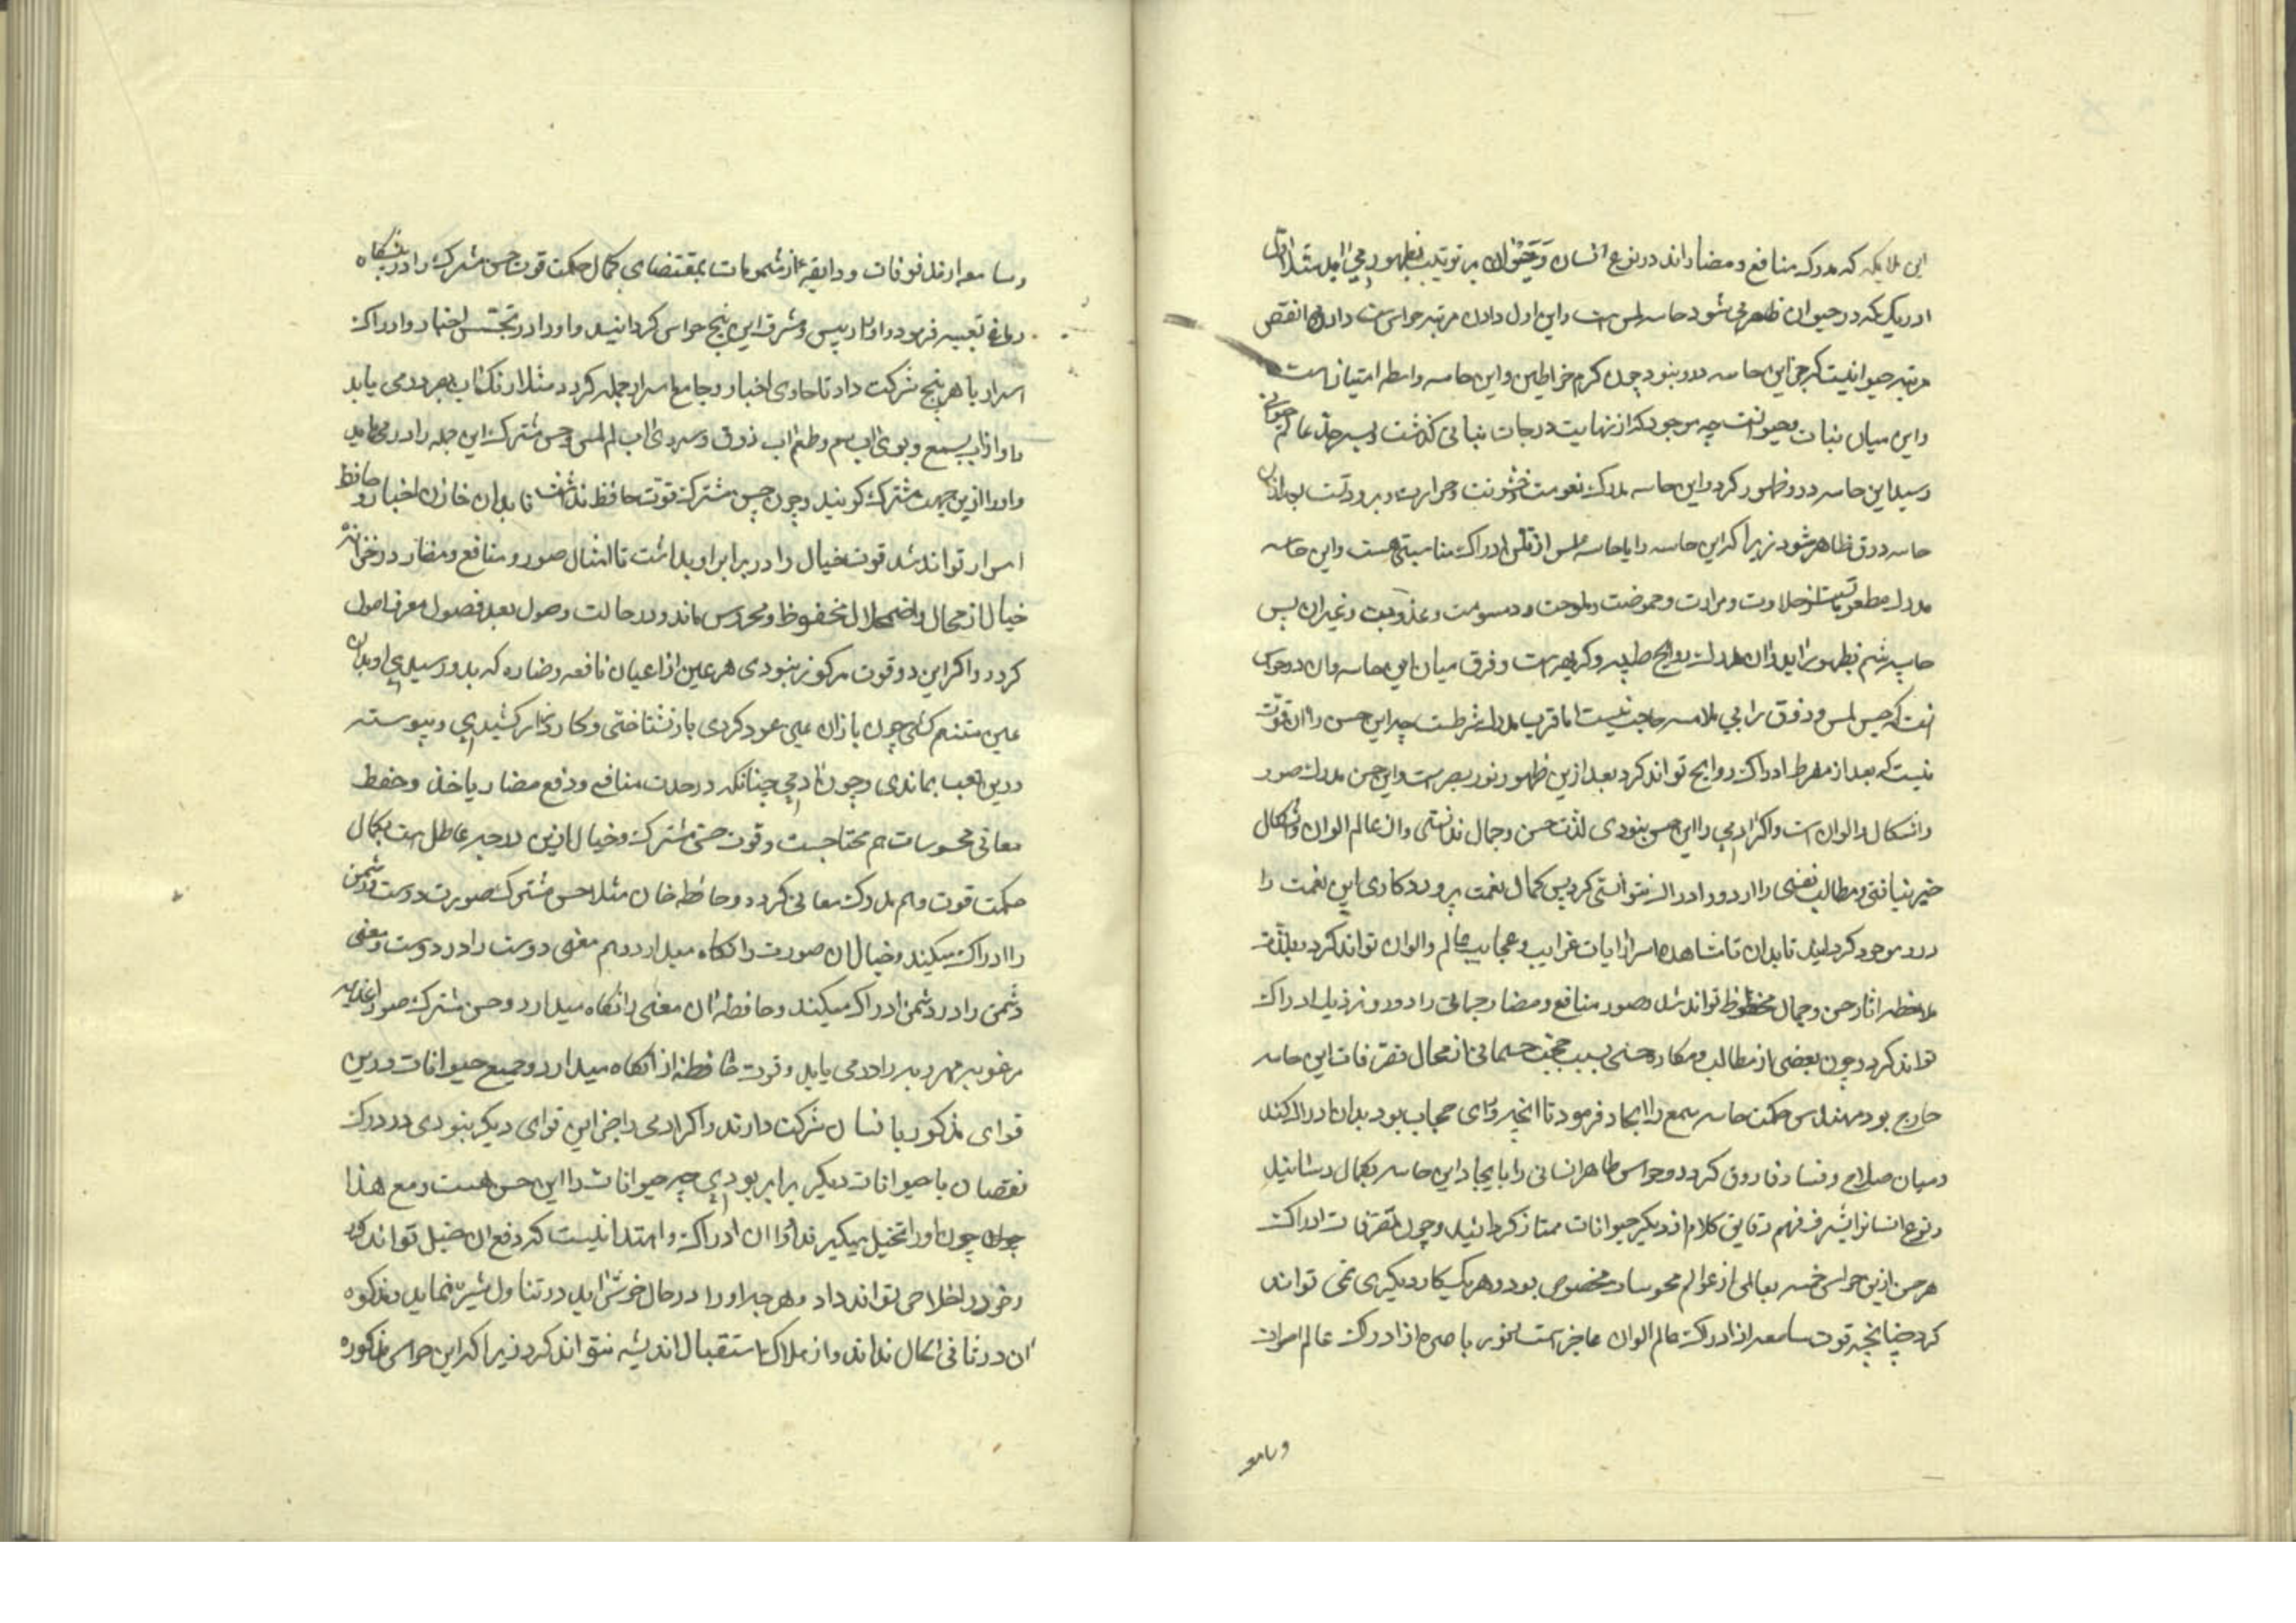 این ملایکه که مدرک منافع و مضار اند در نوع انسان و حیوان بر ترتیب بظهور می آید مثلا اول
ادریکی که در حیوان ظاهر می شود حاسه لمس است و این اول دادن مرتبه حواس است و ادون انقص
مرتبه حیوانیست که جز این حاسه درو نبود چون کرم خراطین و این حاسه واسطه امتیاز است
و این میان نبات و حیوانست چه موجود که از نهایت درجات نباتی گذشت و بسر حد عالم حیوانی
رسید این حاسه درو ظهور کرد و این حاسه مدرک نعومت و خشونت و حرارت و برودتست بعد ازان
حاسه ذوق ظاهر شود زیرا که این حاسه را با حاسه لمس از نفس ادراک مناسبتی هست و این حاسه
مدرک مطعوماتست از حلاوت و مرارت و حموضت و ملوحت و دسومت و عذوبت و غیر ان پس
حاسه شم بظهور آید و ان مدرک روایح طیبه و کریهه است و فرق میان این حاسه و ان دو حواس
انست که حس لمس و ذوق را بی ملامسه حاجب نیست اما قرب مدرک شرطست چه این حس را ان قوت
نیست که بعد از مفرط ادراک روایح تواند کرد بعد ازین ظهور نور بصر است و این حس مدرک صور
و اشکال و الوان است و اگر ادمی را این حس نبودی لذت حسن و جمال ندانستی و از عالم الوان و اشکال
خبر نیافتی و مطالب نفسی را از دور ادراک نتوانستی کرد پس کمال نعمت پروردگاری این نعمت را
درو موجود گردانید تا بدان تماشاهده اسرار ایات غرایب و عجایب عالم والوان تواند کرد و بلذت
ملاحظه اثار حسن و جمال محظوظ تواند شد و صور منافع و مضار جسمانی را در دور و نزدیک ادراک
تواند کرد و چون بعضی از مطالب و مکاره حسی بسبب حجب جسمانی از محال تصرفات این حاسه
خارج بود مهندس حکمت حاسه سمع را ایجاد فرمود تا انچه ورای حجاب بود بدان ادراک کند
و میان صلاح و فساد فاروق گردد و حواس ظاهر انسانی را بایجاد این حاسه بکمال رسانید
و نوع انسانرا بشرف فهم دقایق کلام از دیگر حیوانات ممتاز گردانید و چون تصرفات ادراک
هر حس ازین حواس خمسه بعالمی از عوالم محسوسات مخصوص بود و هر یک کار دیگری نمی تواند
کرد چنانچه قوت سامعه از ادراک عالم الوان عاجز است و نور باصره از ادراک عالم اصوات
و سامعه
و سامعه از مذوقات و ذایقه از مشمومات بمقتضای کمال حکمت قوت حس مشترک را در پیشگاه
دماغ تعبیه فرمود و او را رییس و مشرف این پنج حواس گردانید و او را در تجسس اخبار و ادراک
اسرار با هر پنج شرکت داد تا حاوی اخبار و جامع اسرار جمله گردد مثلا رنگ اب ببصر درمی یابد
و اواز اب بسمع و بوی اب بشم و طعم اب بذوق و سردی اب بلمس و حس مشترک این جمله را درمی یابد
و او را ازین جهت مشترک گویند و چون حس مشترک قوت حافظه نداشت تا بدان خازن اخبار و حافظ
اسرار تواند شد قوت خیال را در برابر او بداشت تا امثال صور و منافع و مضار در خزانه
خیال از محال و اضمحلال محفوظ و محروس ماند و در حالت وصول بعد فصول معرف اصول
گردد و اگر این دو قوت مرکوز نبودی هر عین از اعیان نافعه و ضاره که بدو رسیدی او بدان
عین متنعم گشتی چون بازان عین عود کردی بازنشتاختی و کار دراز کشیدی و پیوسته
درین تعب بماندی و چون ادمی چنانکه در جذب منافع و دفع مضار باخذ و حفظ
معانی محسوسات هم محتاجست و قوت حس مشترک و خیال ازین درجه عاطل است بکمال
حکمت قوت وهم مدرک معانی کرد و حافظه خازن مثلا حس مشترک صورت دوست و دشمن
را ادراک میکند و خیال ان صورت را نگاه میدارد و وهم معنی دوست را در دوست و معنی
دشمن را در دشمن ادراک میکند و حافظه ان معنی را نگاه میدارد و حس مشترک صور اغذیه
مرغوبه و مهروبه را درمی یابد و قوت حافظه انرا نگاه میدارد و جمیع حیوانات درین
قوای مذکور با انسان شرکت دارند و اگر ادمی را جز این قوای دیگر نبودی در درک
نقصان با حیوانات دیگر برابر بودی چه حیوانات را این حس هست و مع هذا
چون او را تخیل میگیرند او را ان ادراک و اهتدا نیست که دفع ان حیل تواند کرد
و خود را خلاص تواند داد و هر چه او را در حال خوش اید در تناول شره نماید و نکوه
ان در ثانی الحال نداند و از هلاک استقبال اندیشه نتواند کرد زیرا که این حواس مذکوره